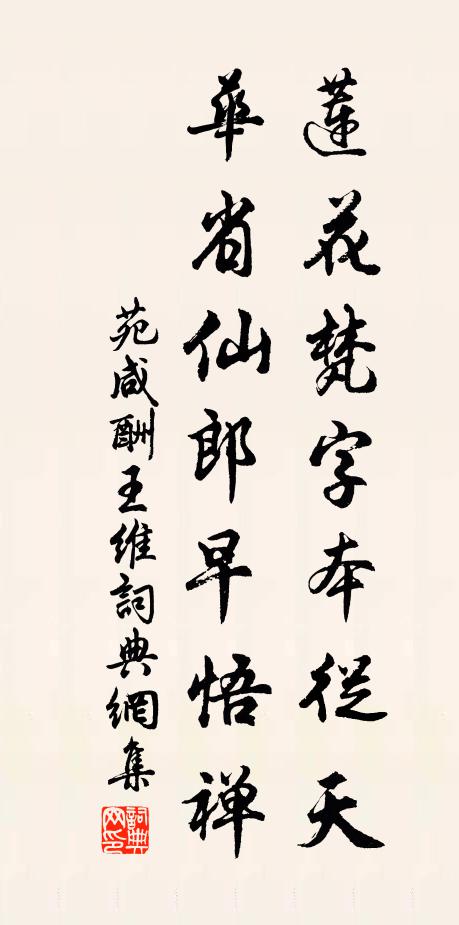 蓮花梵字本從天
華省仙郎早悟禅
苑咸酬王維詞典網集
詞典網印